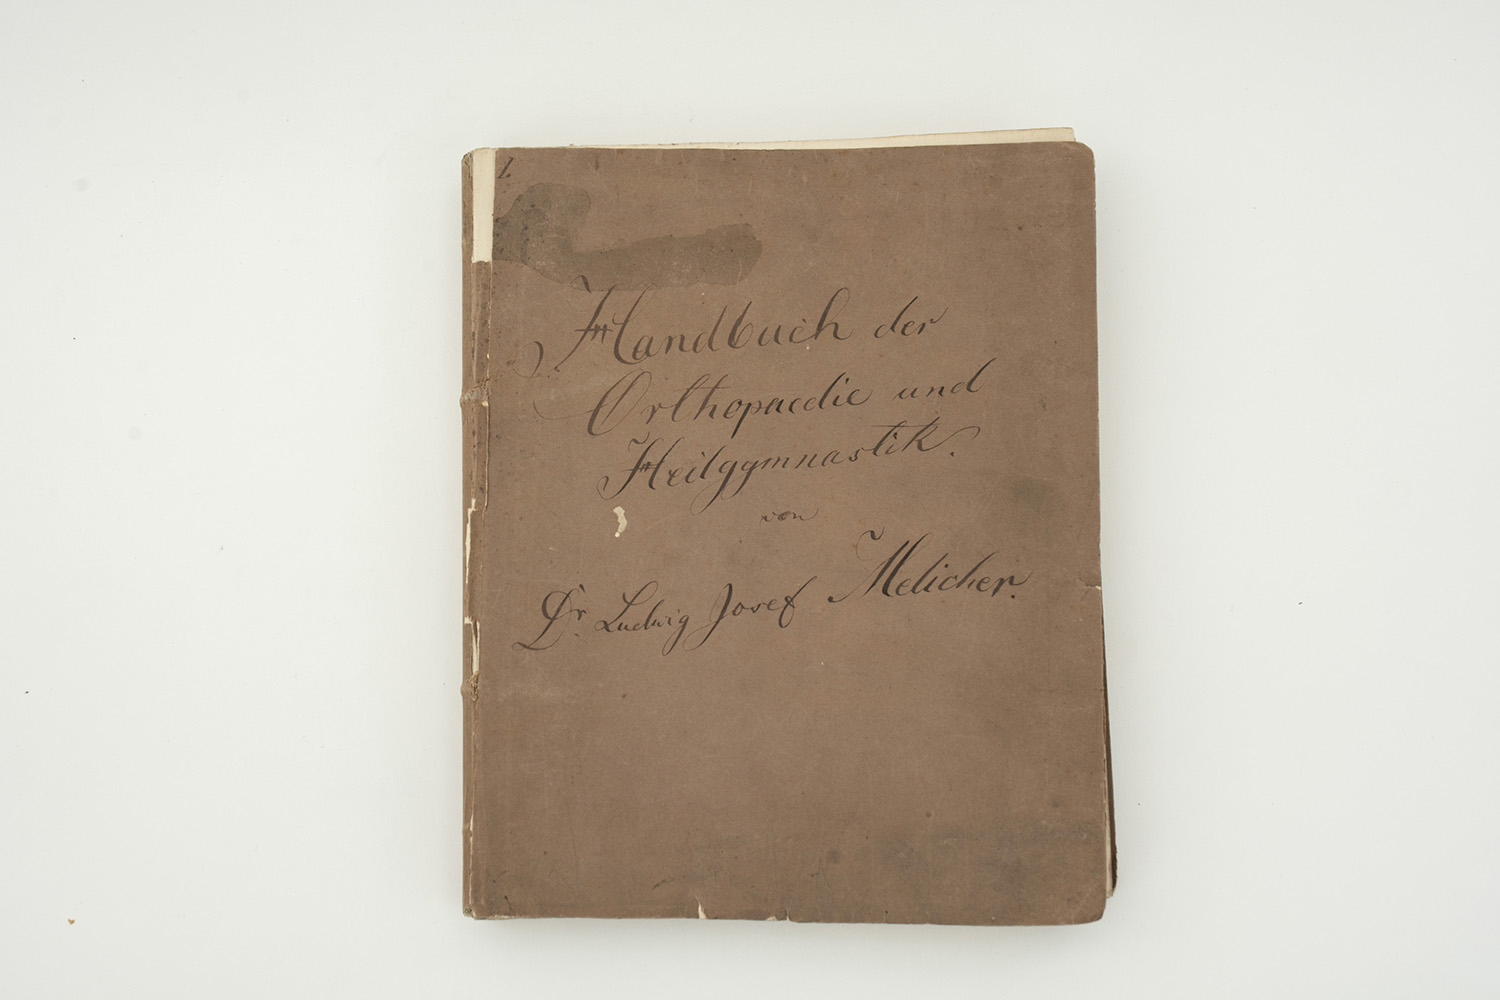 1.
Handbuch der
Orthopaedie und
Heilgymnastik.
von
Dr. Ludwig Josef Melicher.